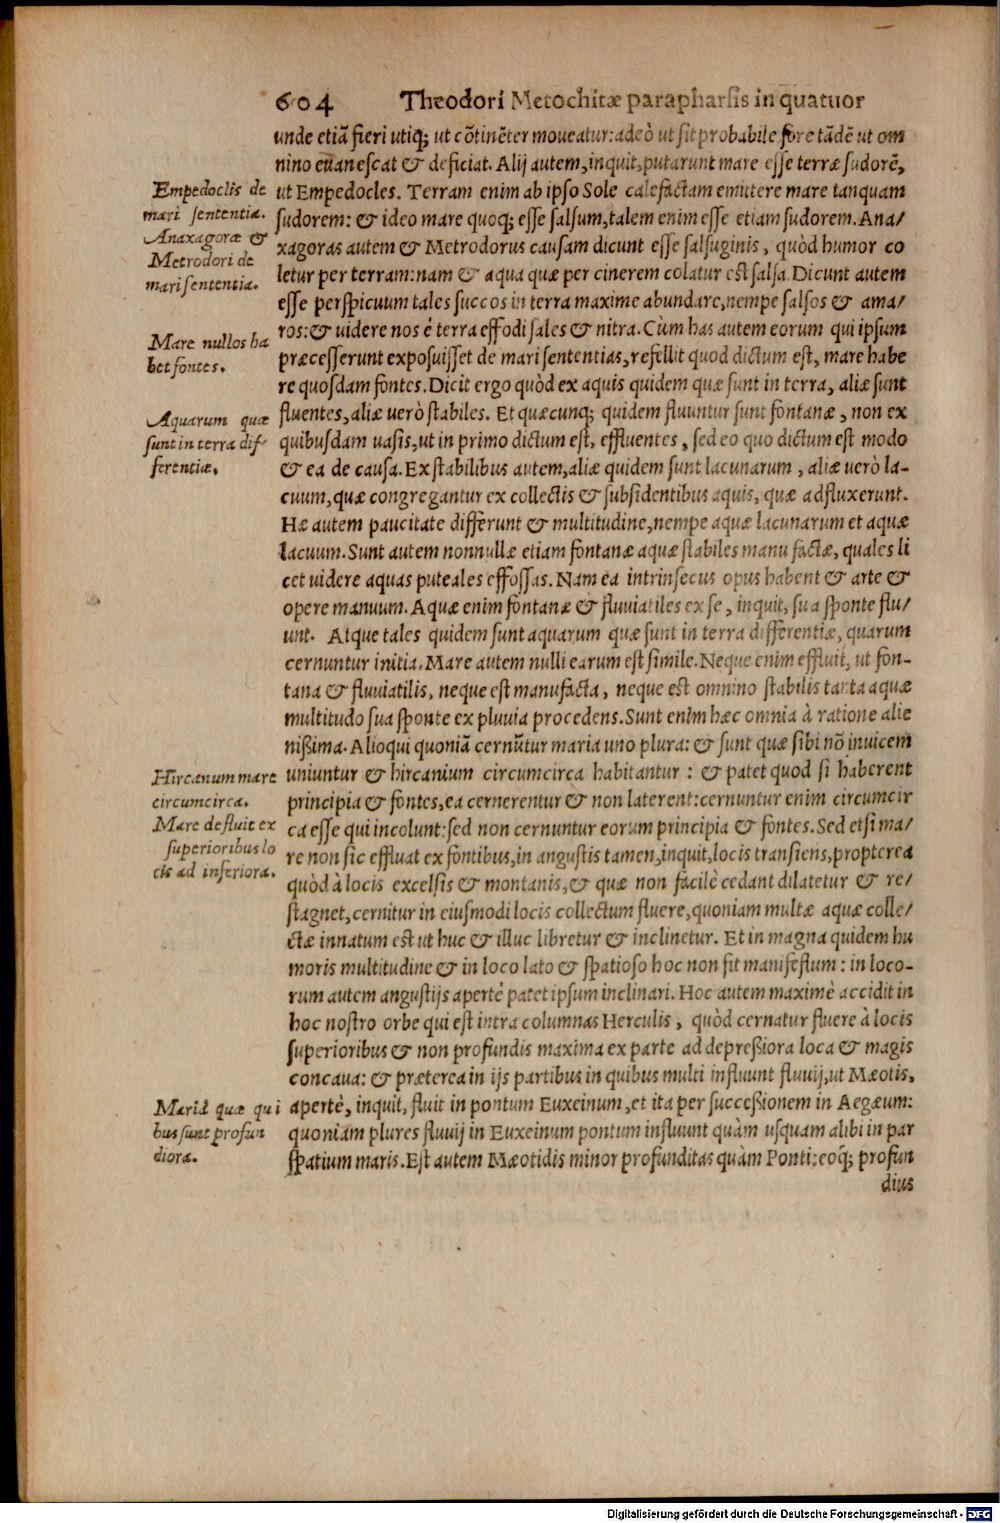 604 Theodori Metochitæ parapharsis in quatuor
unde etiã fieri utiq; ut cõtinẽter moueatur: adeò ut sit probabile fore tãdẽ ut om
nino euanescat & deficiat. Alij autem, inquit, putarunt mare esse terræ sudorẽ,
Empedoclis de
mari sententia.
ut Empedocles. Terram enim ab ipso Sole calefactam emittere mare tanquam
sudorem: & ideo mare quoq; esse salsum, talem enim esse etiam sudorem. Ana/
Anaxagoræ &
Metrodori de
mari sententia.
xagoras autem & Metrodorus causam dicunt esse salsuginis, quòd humor co
letur per terram: nam & aqua quæ per cinerem colatur est salsa. Dicunt autem
esse perspicuum tales succos in terra maxime abundare, nempe salsos & ama/
ros: & uidere nos è terra effodi sales & nitra. Cùm has autem eorum qui ipsum
Mare nullos ha
bet fontes.
præcesserunt exposuisset de mari sententias, refellit quod dictum est, mare habe
re quosdam fontes. Dicit ergo quòd ex aquis quidem quæ sunt in terra, aliæ sunt
fluentes, aliæ uerò stabiles. Et quæcunq; quidem fluuntur sunt fontanæ, non ex
Aquarum quæ
sunt in terra dif-
ferentiæ.
quibusdam uasis, ut in primo dictum est, effluentes, sed eo quo dictum est modo
& ea de causa. Ex stabilibus autem, aliæ quidem sunt lacunarum, aliæ uerò la-
cuum, quæ congregantur ex collectis & subsidentibus aquis, quæ adfluxerunt.
Hæ autem paucitate differunt & multitudine, nempe aquæ lacunarum et aquæ
lacuum. Sunt autem nonnullæ etiam fontanæ aquæ stabiles manu factæ, quales li
cet uidere aquas puteales effossas. Nam ea intrinsecus opus habent & arte &
opere manuum. Aquæ enim fontanæ & fluuiatiles ex se, inquit, sua sponte flu/
unt. Atque tales quidem sunt aquarum quæ sunt in terra differentiæ, quarum
cernuntur initia. Mare autem nulli earum est simile. Neque enim effluit, ut fon-
tana & fluuiatilis, neque est manufacta, neque est omnino stabilis tanta aquæ
multitudo sua sponte ex pluuia procedens. Sunt enim hæc omnia à ratione alie
nißima. Alioqui quoniã cernũtur maria uno plura: & sunt quæ sibi nõ inuicem
Hircanum mare
circumcirca.
uniuntur & hircanium circumcirca habitantur: & patet quod si haberent
principia & fontes, ea cernerentur & non laterent: cernuntur enim circumcir
Mare defluit ex
superioribus lo
cis ad inferiora.
ca esse qui incolunt: sed non cernuntur eorum principia & fontes. Sed etsi ma/
re non sic effluat ex fontibus, in angustis tamen, inquit, locis transiens, propterea
quòd à locis excelsis & montanis, & quæ non facilè cedant dilatetur & re/
stagnet, cernitur in eiusmodi locis collectum fluere, quoniam multæ aquæ colle/
ctæ innatum est ut huc & illuc libretur & inclinetur. Et in magna quidem hu
moris multitudine & in loco lato & spatioso hoc non fit manifestum: in loco-
rum autem angustijs apertè patet ipsum inclinari. Hoc autem maximè accidit in
hoc nostro orbe qui est intra columnas Herculis, quòd cernatur fluere à locis
superioribus & non profundis maxima ex parte ad depreßiora loca & magis
concaua: & præterea in ijs partibus in quibus multi influunt fluuij, ut Mæotis,
Maria quæ qui
bus sunt profun
diora.
apertè, inquit, fluit in pontum Euxeinum, et ita per succeßionem in Aegæum:
quoniam plures fluuij in Euxeinum pontum influunt quàm usquam alibi in par
spatium maris. Est autem Mæotidis minor profunditas quàm Ponti: eoq; profun
dius
Digitalisierung gefördert durch die Deutsche Forschungsgemeinschaft - DFG